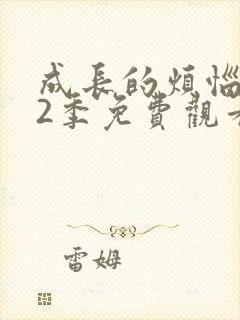 成長的煩惱
2季免費觀
雷姆